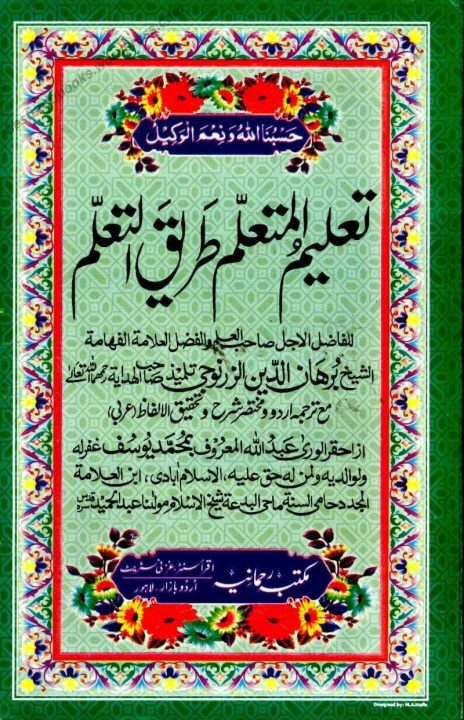 حَسْبُنَا اللهُ وَنِعْمَ الْوَكِيْلُ
تعلیم المتعلّم طریق التعلّم
للفاضل الاجل صاحب العلم والفضل العلامة الفهامة
الشیخ بُرهان الدّین الزرنوجی تلمیذ صاحب الهدایة رحمهما الله تعالیٰ
مع ترجمہ اردو و مختصر شرح و تحقیق الالفاظ (عربی)
از احقر الوریٰ عبد الله المعروف بمحمد یوسف غفر له
ولوالدیه ولمن له حق علیه، الاسلام آبادی، ابن العلامة
المجدد حامی السنة ماحی البدعة شیخ الاسلام مولٰنا عبد الحمید قدس سره
مکتبہ رحمانیہ
اقرأ سنٹر غزنی سٹریٹ
اُردو بازار۔ لاہور
Designed by: M.A.Hafiz